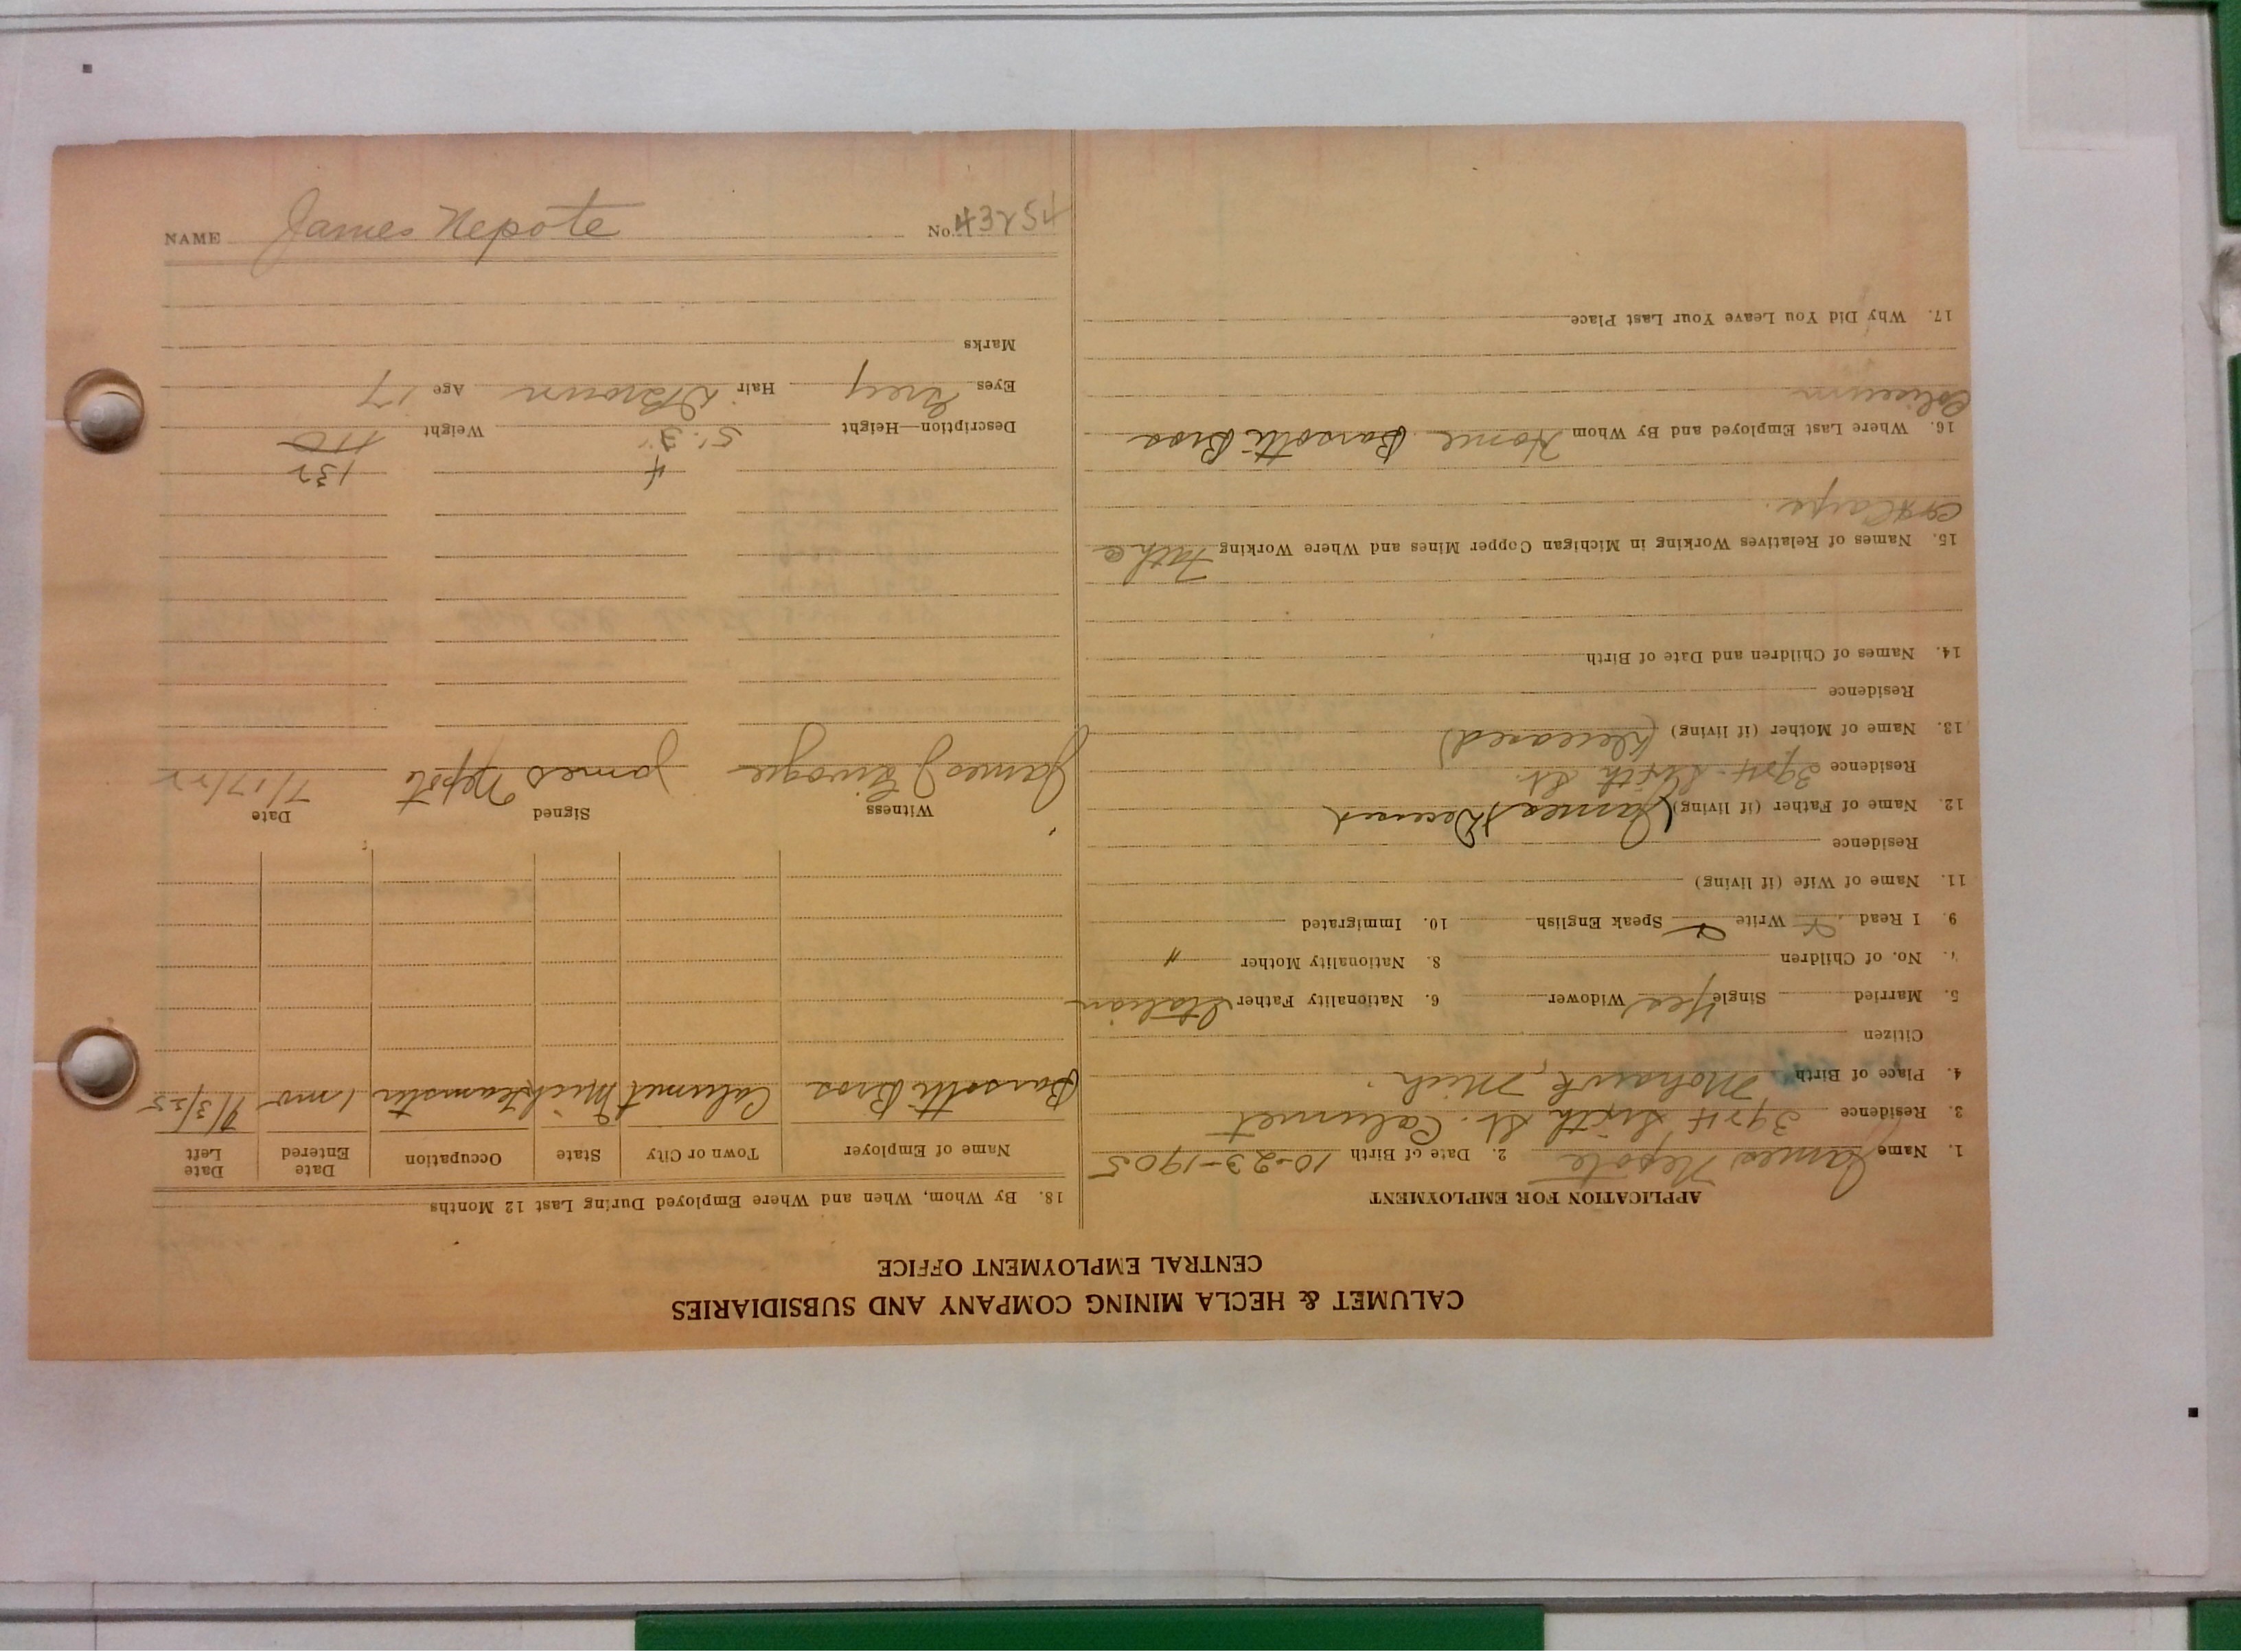 CALUMET & HECLA MINING COMPANY AND SUBSIDIARIES
CENTRAL EMPLOYMENT OFFICE
APPLICATION FOR EMPLOYMENT
1. Name James Nepote 2. Date of Birth 10-23-1905
3. Residence 3974 Sixth St. Calumet
4. Place of Birth Mohawk, Mich.
Citizen
5. Married Single Yes Widower 6. Nationality Father Italian
7. No. of Children 8. Nationality Mother "
9. I Read Write Speak English 10. Immigrated
11. Name of Wife (if living)
Residence
12. Name of Father (if living) (James) Deceased
Residence 3974 Sixth St.
13. Name of Mother (if living) (deceased)
Residence
14. Names of Children and Date of Birth
15. Names of Relatives Working in Michigan Copper Mines and Where Working Father
16. Where Last Employed and By Whom Home Barsotti Bros
Coliseum
17. Why Did You Leave Your Last Place
18. By Whom, When and Where Employed During Last 12 Months
Name of Employer Town or City State Occupation Date Entered Date Left
Barsotti Bros Calumet Mich teamster 1 mo
Witness Signed Date
James J James Nepote 7/17/22
4 132
Description—Height 5' 3" Weight 110
Eyes Grey Hair D Brown Age 17
Marks
NAME James Nepote No. 43254